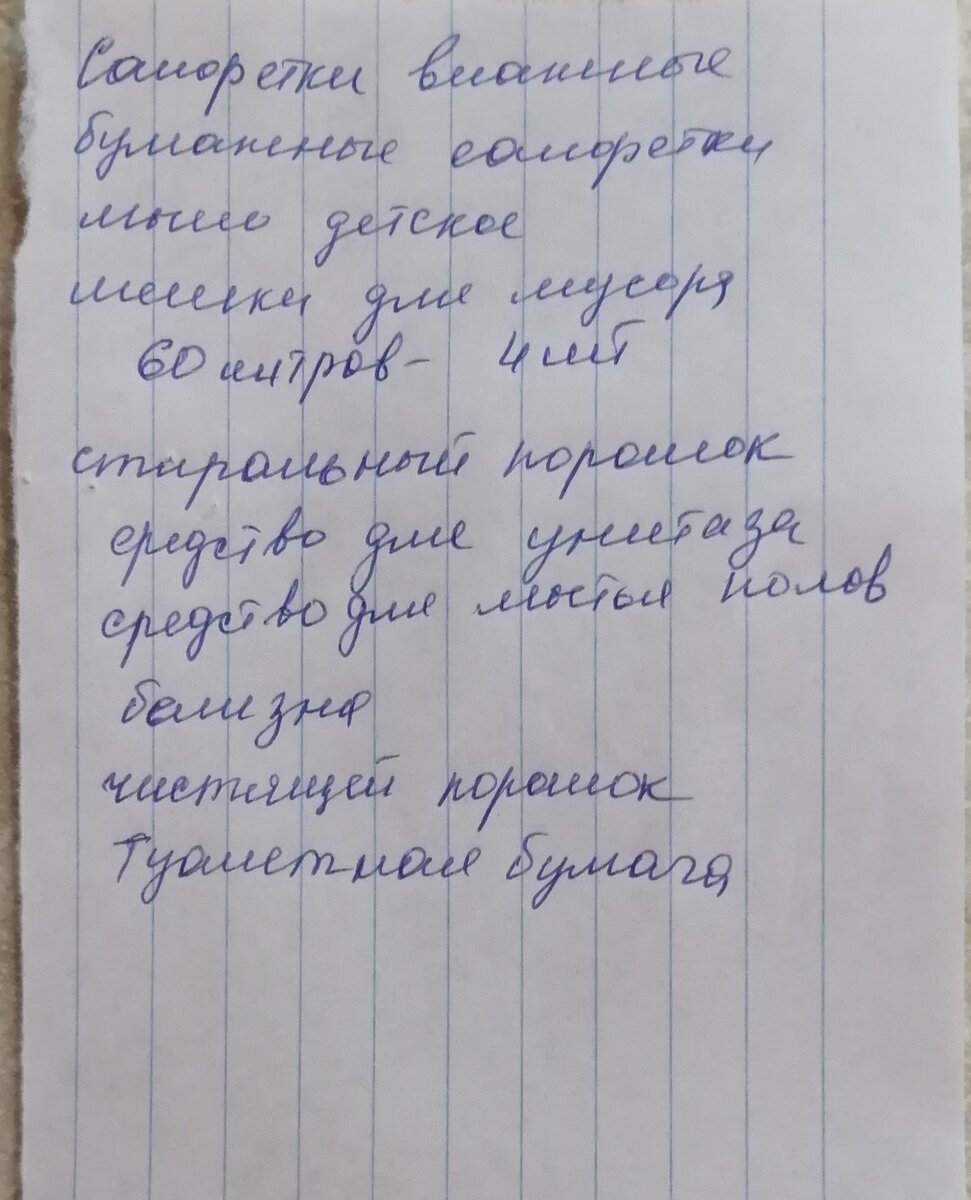 Салфетки влажные
бумажные салфетки
мыло детское
мешки для мусора
60 литров - 4 шт
стиральный порошок
средство для унитаза
средство для мытья полов
белизна
чистящей порошок
Туалетная бумага